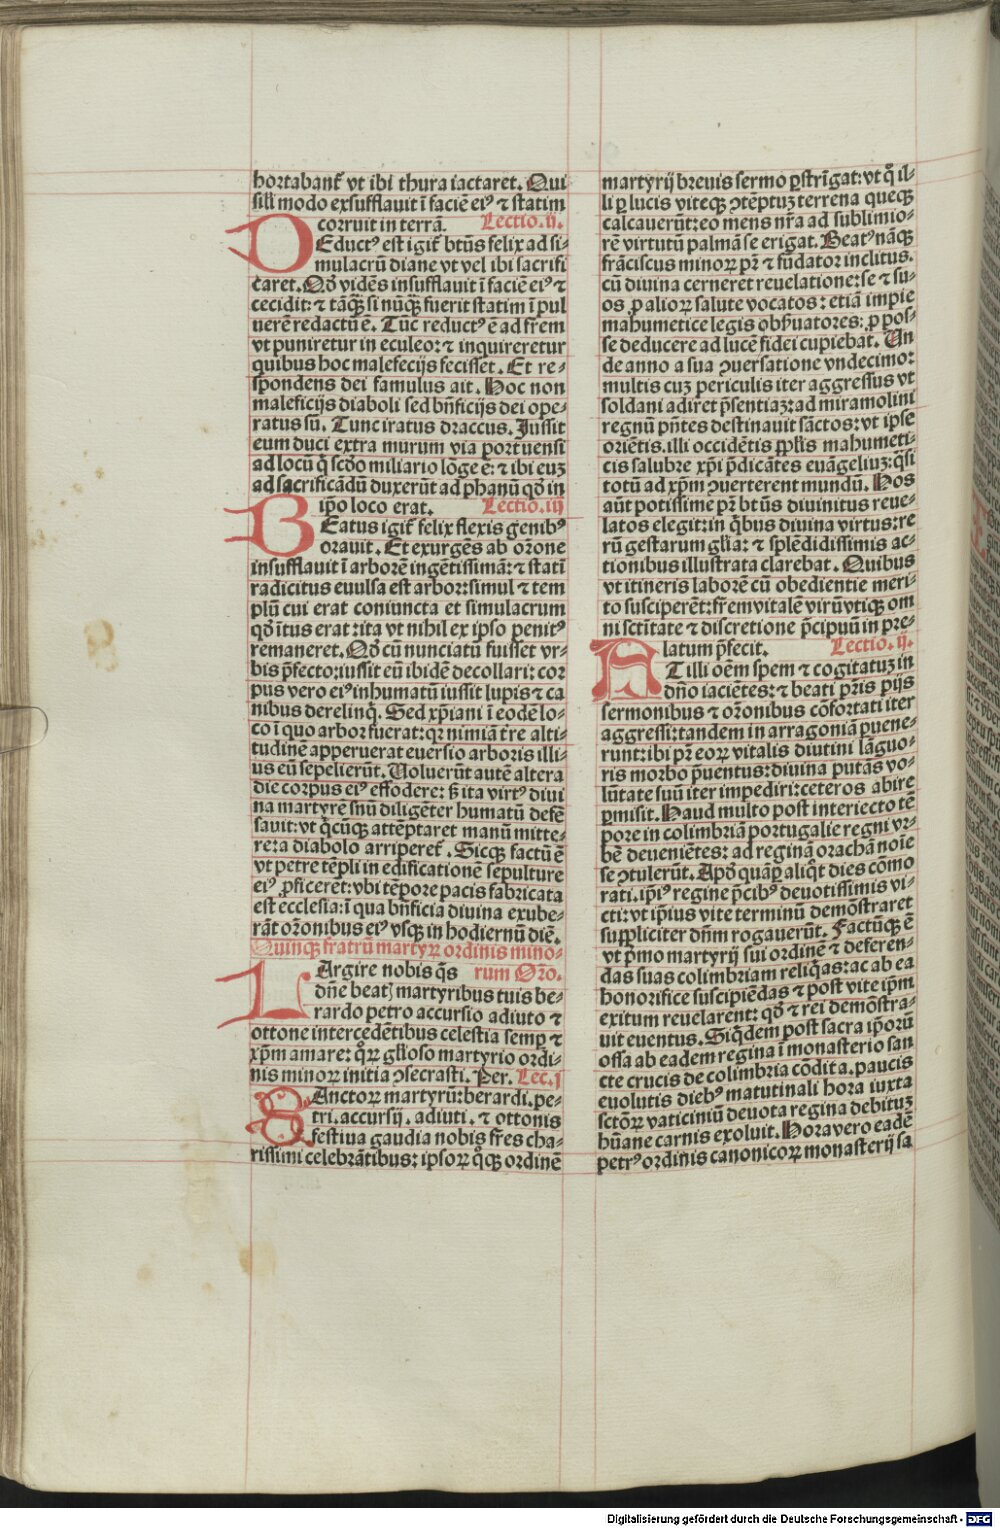 hortabant᷑ vt ibi thura iactaret. Qui
sili modo exsufflauit ī faciē eiꝰ ⁊ statim
corruit in terrā. Lectio. ij.
DEductꝰ est igit᷑ btūs felix ad si-
mulacrū diane vt vel ibi sacrifi
caret. Qd̄ vidēs insufflauit ī faciē eiꝰ ⁊
cecidit: ⁊ tāqꝫ si nūqꝫ fuerit statim ī pul
uerē redactū ē. Tūc reductꝰ ē ad frem
vt puniretur in eculeo: ⁊ inquireretur
quibus hoc malefecijs fecisset. Et re-
spondens dei famulus ait. Hoc non
maleficijs diaboli sed bn̄ficijs dei ope-
ratus sū. Tunc iratus draccus. Jussit
eum duci extra murum via portuensi
ad locū q̄ scd̄o miliario lōge ē: ⁊ ibi euꝫ
ad sacrificādū duxerūt ad phanū qd̄ in
ip̄o loco erat. Lectio. iij
BEatus igit᷑ felix flexis genibꝰ
orauit. Et exurgēs ab or̄one
insufflauit ī arborē ingētissimā: ⁊ statī
radicitus euulsa est arbor: simul ⁊ tem
plū cui erat coniuncta et simulacrum
qd̄ ītus erat: ita vt nihil ex ipso penitꝰ
remaneret. Qd̄ cū nunciatū fuisset vr-
bis p̄fecto: iussit eū ibidē decollari: cor
pus vero eiꝰ inhumatū iussit lupis ⁊ ca
nibus derelinq̄. Sed xp̄iani ī eodē lo-
co ī quo arbor fuerat: qr nimiā t̄re alti-
tudinē apperuerat euersio arboris illi-
us eū sepelierūt. Uoluerūt autē altera
die corpus eiꝰ effodere: sꝫ ita virtꝰ diui
na martyrē snū diligēter humatū defē
sauit: vt q̄cūqꝫ attēptaret manū mitte-
re: a diabolo arriperet᷑. Sicqꝫ factū ē
vt petre tēpli in edificationē sepulture
eiꝰ ꝓficerēt: vbi tēpore pacis fabricata
est ecclesia: ī qua bn̄ficia diuina exube-
rāt or̄onibus eiꝰ vsqꝫ in hodiernū diē.
Quinqꝫ fratrū martyrꝝ ordinis mino-
LArgire nobis q̄s rum Or̄o.
dn̄e beatꝫ martyribus tuis be-
rardo petro accursio adiuto ⁊
ottone intercedētibus celestia semꝑ ⁊
xp̄m amare: q̄rꝝ gl̄ioso martyrio ordi-
nis minorꝝ initia ꝯsecrasti. Per. Lec. j
SAnctorꝝ martyrū: berardi. pe-
tri. accursij. adiuti. ⁊ ottonis
festiua gaudia nobis fr̄es cha-
rissimi celebrātibus: ipsorꝝ q̊qꝫ ordinē
martyrij breuis sermo ꝑstrīgat: vt q̊ il-
li ꝑ lucis viteqꝫ ꝯtēptuꝫ terrena queqꝫ
calcauerūt: eo mens nr̄a ad sublimio-
rē virtutū palmā se erigat. Beatꝰ nāqꝫ
frāciscus minorꝝ pr̄ ⁊ fūdator inclitus.
cū diuina cerneret reuelatione: se ⁊ su-
os ꝓ aliorꝝ salute vocatos: etiā impie
mahumetice legis obẜuatores: ꝓ pos-
se deducere ad lucē fidei cupiebat. Un
de anno a sua ꝯuersatione vndecimo:
multis cuꝫ periculis iter aggressus vt
soldani adiret p̄sentiaꝫ: ad miramolini
regnū pn̄tes destinauit sāctos: vt ipse
oriētis. illi occidētis pp̄lis mahumeti-
cis salubre xp̄i p̄dicātes euāgeliuꝫ: q̄si
totū ad xp̄m ꝯuerterent mundū. Hos
aūt potissime pr̄ btūs diuinitus reue-
latos elegit: in q̄bus diuina virtus: re
rū gestarum gl̄ia: ⁊ splēdidissimis ac-
tionibus illustrata clarebat. Quibus
vt itineris laborē cū obedientie meri-
to susciperēt: fr̄em vitalē virū vtiqꝫ om
ni sctītate ⁊ discretione p̄cipuū in pre-
latum p̄fecit. Lectio. ij.
AT illi oēm spem ⁊ cogitatuꝫ in
dn̄o iaciētes: ⁊ beati pr̄is pijs
sermonibus ⁊ or̄onibus cōfortati iter
aggressi: tandem in arragoniā puene-
runt: ibi pr̄ eorꝝ vitalis diutini lāguo-
ris morbo p̄uentus: diuina putās vo-
lūtate suū iter impediri: ceteros abire
ꝑmisit. Haud multo post interiecto tē
pore in colimbriā portugalie regni vr-
bē deueniētes: ad reginā orachā noīe
se ꝯtulerūt. Apd̄ quā ꝑ aliq̄t dies cōmo
rati. ip̄iꝰ regine p̄cibꝰ deuotissimis vi-
cti: vt ip̄ius vite terminū demōstraret
suppliciter dn̄m rogauerūt. Factūqꝫ ē
vt p̄mo martyrij sui ordinē ⁊ deferen-
das suas colimbriam reliq̄as: ac ab ea
honorifice suscipiēdas ⁊ post vite ip̄ius
exitum reuelarent: qd̄ ⁊ rei demōstra-
uit euentus. Siq̄dem post sacra ip̄orū
ossa ab eadem regina ī monasterio san
cte crucis de colimbria cōdita. paucis
euolutis diebꝰ matutinali hora iuxta
sctōrꝝ vaticiniū deuota regina debituꝫ
hūane carnis exoluit. Hora vero eadē
petrꝰ ordinis canonicorꝝ monasterij sa
Digitalisierung gefördert durch die Deutsche Forschungsgemeinschaft - DFG